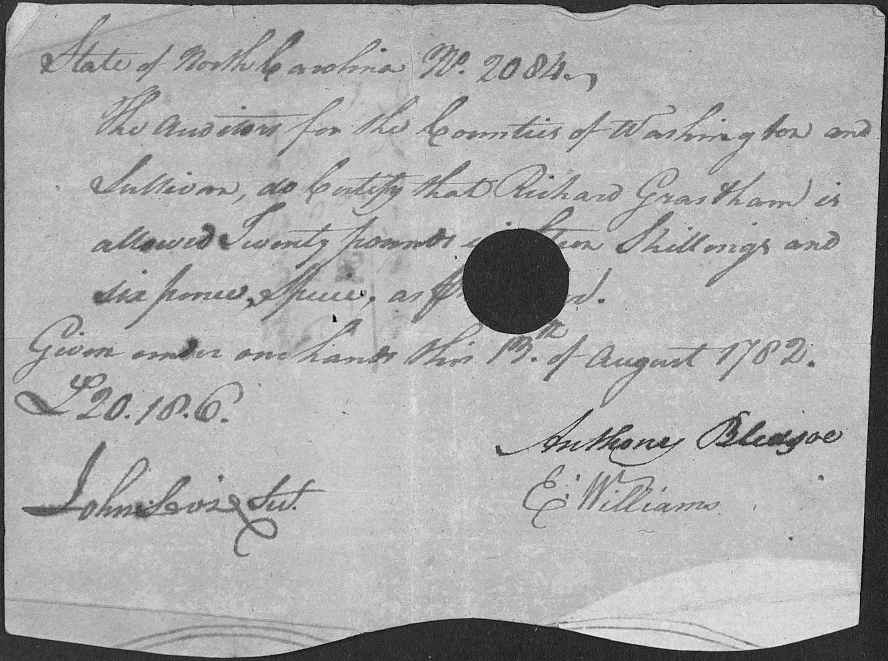 State of North Carolina No. 2084.
The Auditors for the Counties of Washington and
Sullivan, do Certify that Richard Grastham is
allowed Twenty pounds Shillings and
six pence, Specie, as
Given under our hands this 13.th of August 1782.
£20.18.6.
Anthony Bledsoe
John
E: Williams